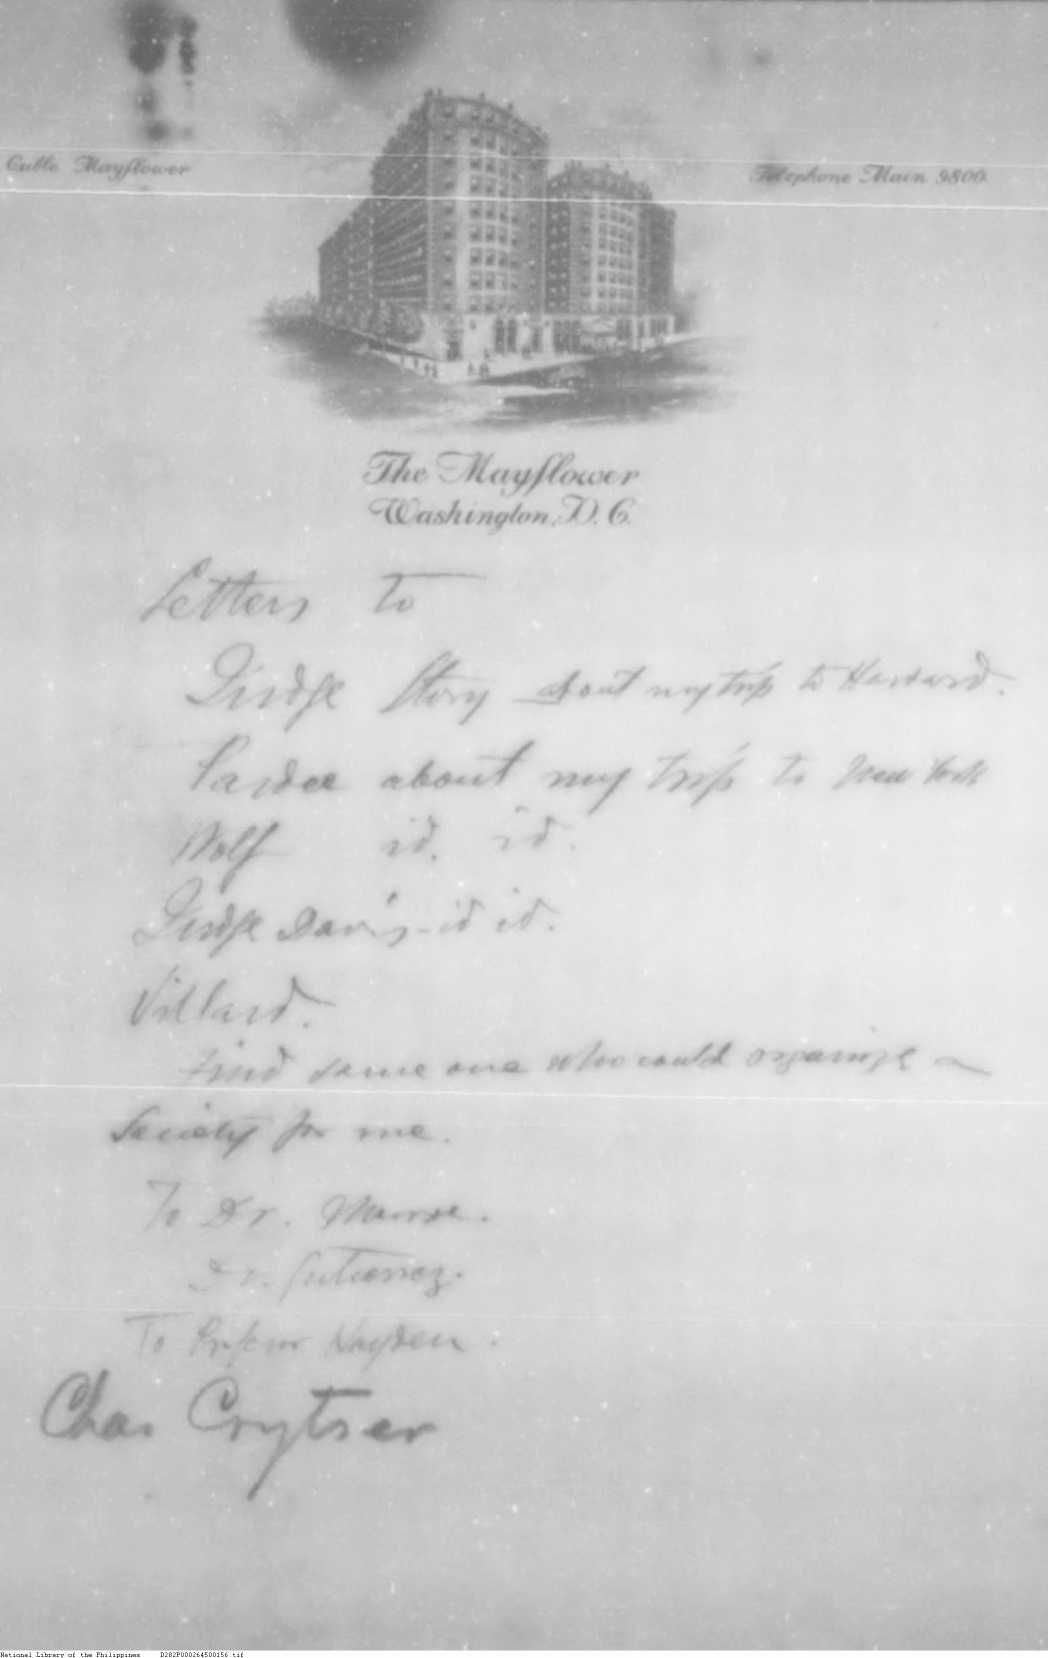 Cable Mayflower
Telephone Main 9800
The Mayflower
Washington, D. C.
Letters to
Judge Story about my trip to Harvard.
Pardee about my trip to New York
Wolf id. id.
Judge Davis - id id.
Villard.
Find some one who could organize a
Society for me.
To Dr.
Dr. Gutierrez.
To Professor Hayden.
Chas Crytser
National Library of the Philippines D282P000264500156.tif